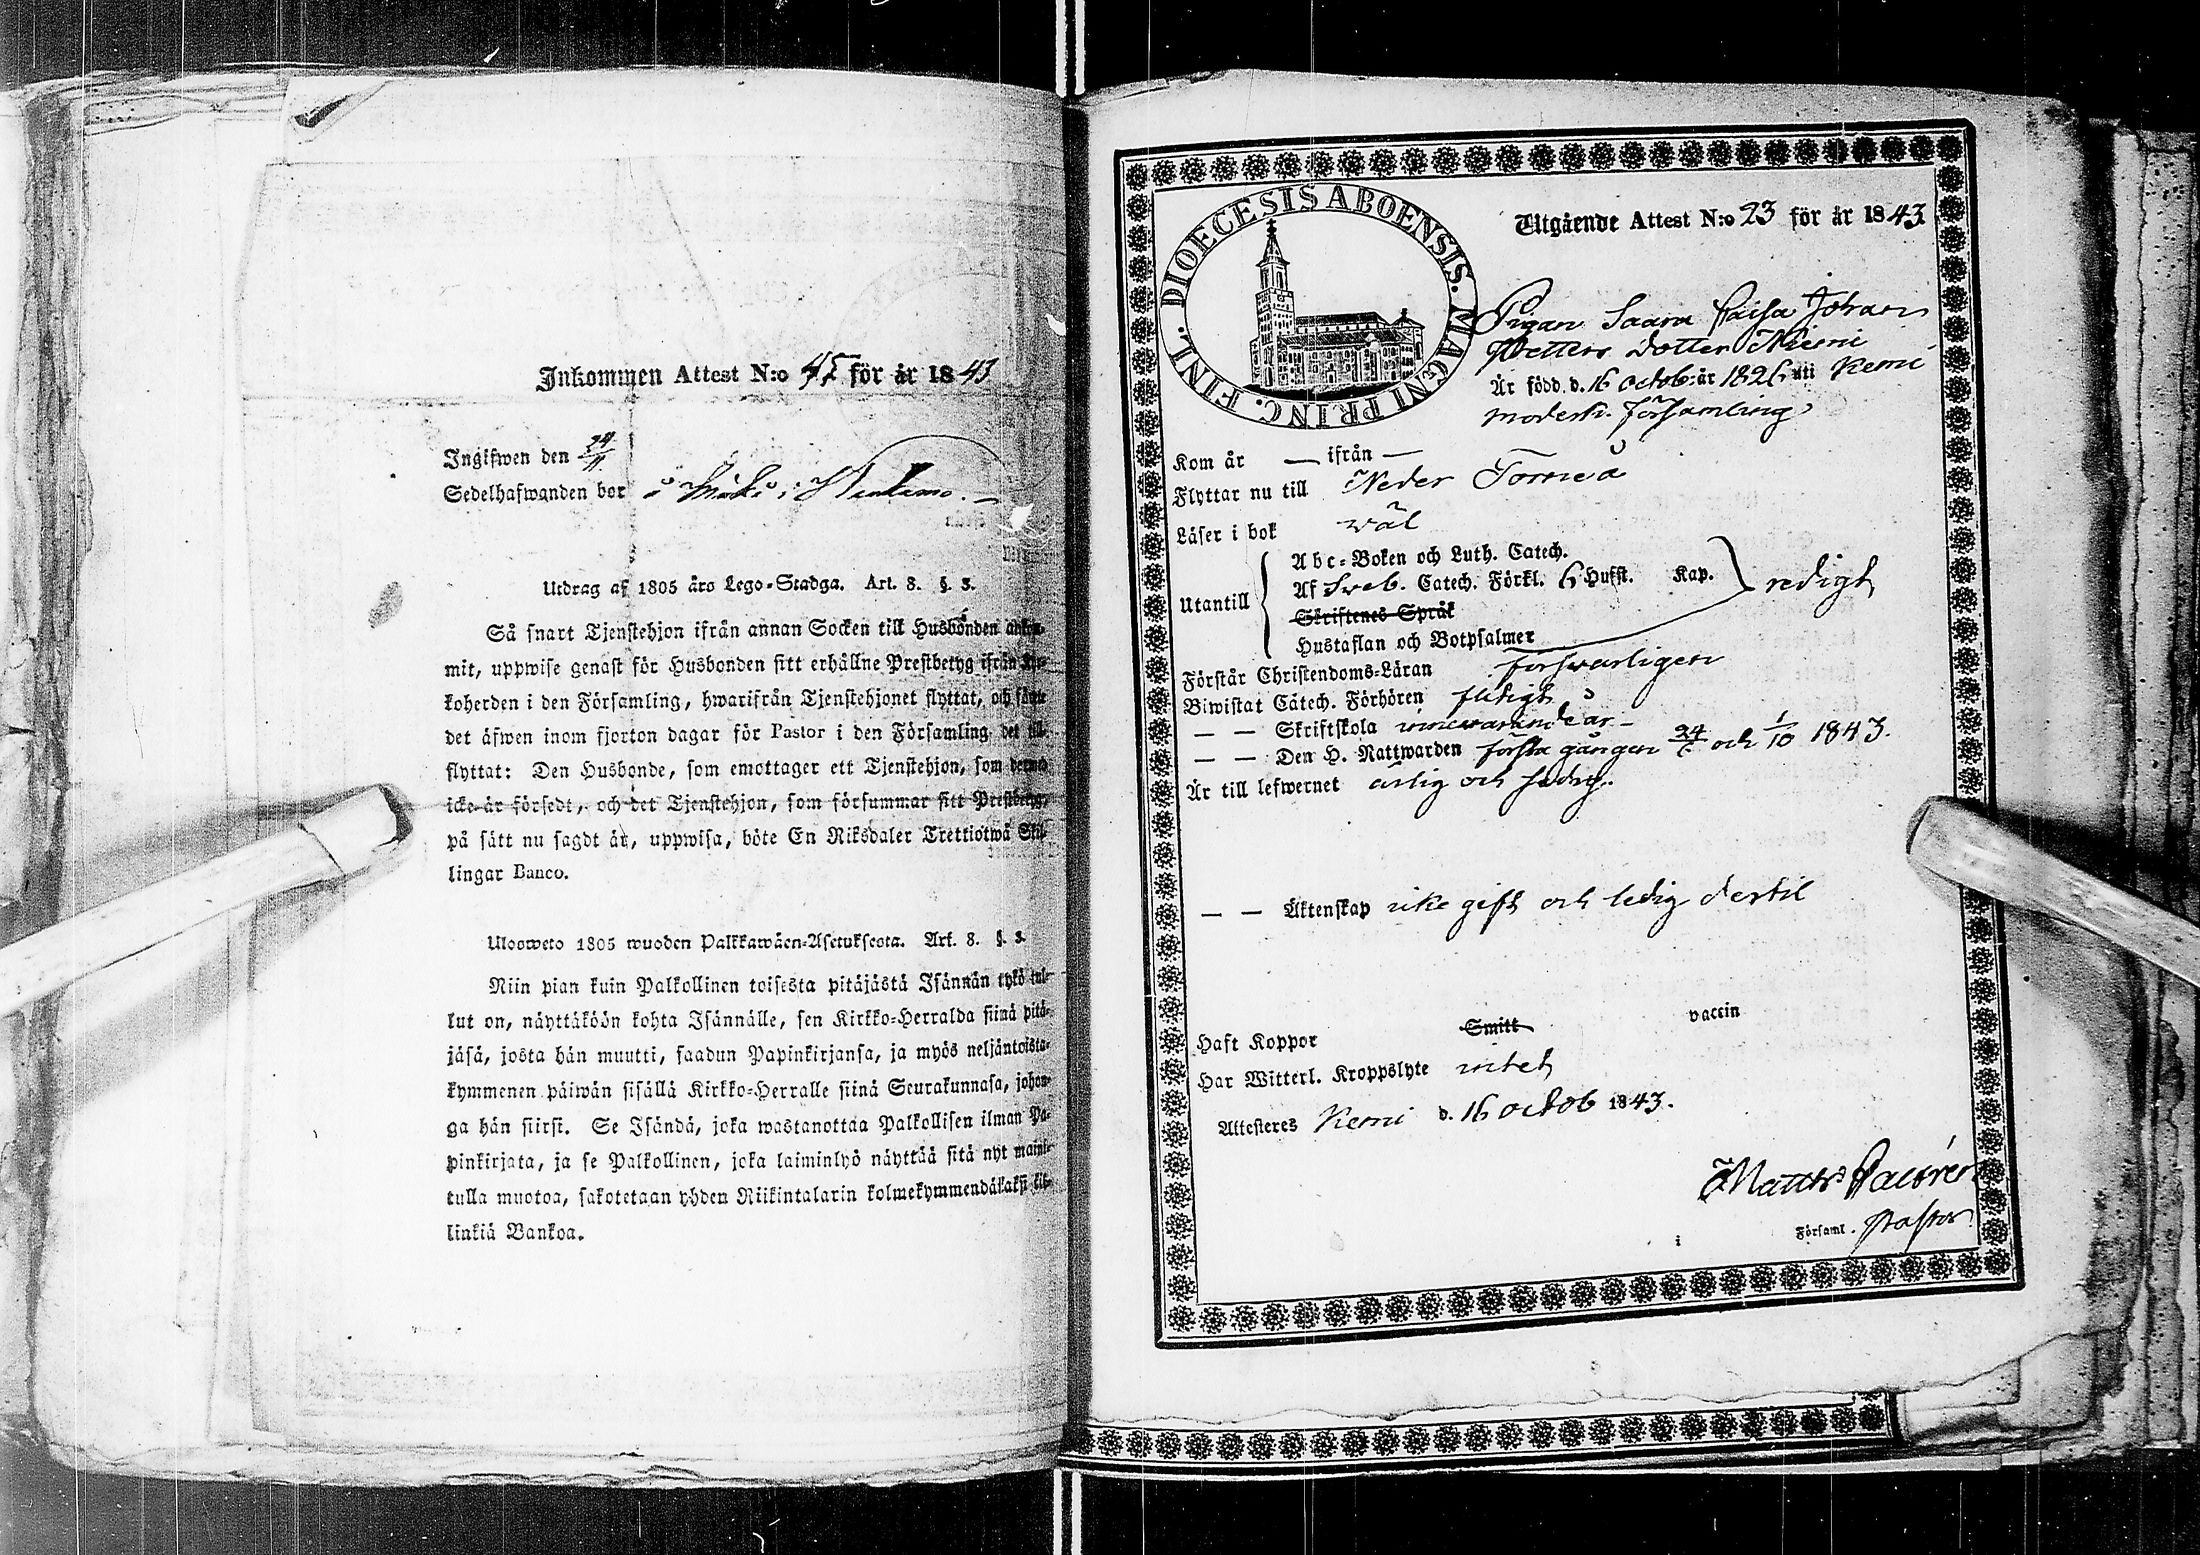 Inkommen Attest N:o 45 för år 1843
Ingifwen den 24/11
Sedelhafwanden bor i
Utdrag af 1805 års Lego-Stadga. Art. 8. §. 3.
Så snart Tjenstehjon ifrån annan Socken till Husbonden
mit, uppwise genast för Husbonden sitt erhållne Prestbetyg ifrån
koherden i den Församling, hwarifrån Tjenstehjonet flyttat, och
det äfwen inom fjorton dagar för Pastor i den Församling det till
flyttat: Den Husbonde, som emottager ett Tjenstehjon, som dermed
icke är försedt, och det Tjenstehjon, som försummar sitt Prestbetyg,
på sätt nu sagdt är, uppwisa, böte En Riksdaler Trettiotwå Skil-
lingar Banco.
Ulosweto 1805 wuoden Palkkawäen-Asetuksesta. Art. 8. §. 3.
Niin pian kuin Palkollinen toisesta pitäjästä Isännän tykö tul-
lut on, näyttäköön kohta Isännälle, sen Kirkko-Herralda siinä pitä-
jäsä, josta hän muutti, saadun Papinkirjansa, ja myös neljäntoista-
kymmenen päiwän sisällä Kirkko-Herralle siinä Seurakunnasa, johon-
ga hän siirsi. Se Isändä, joka wastanottaa Palkollisen ilman Pa-
pinkirjata, ja se Palkollinen, joka laiminlyö näyttää sitä nyt maini-
tulla muotoa, sakotetaan yhden Riikintalarin kolmekymmendäkaksi kil-
linkiä Bankoa.
DIOECESIS ABOENSIS. MAGNI PRINC. FINL.
Utgående Attest N:o 23 för år 1843
Pigan Saara Caisa Johan
Petters dotter Niemi
Är född d. 16 octob: år 1826 uti Kemi
moderk. församling
Kom år — ifrån —
Flyttar nu till Neder Torneå
Läser i bok wäl
Utantill
Abc-Boken och Luth. Catech.
Af Sweb. Catech. Förkl. 6 Hufst. Kap. redigt
Skriftenes Språk
Hustaflan och Botpsalmer
Förstår Christendoms-Läran förswarligen
Biwistat Catech. Förhören flitigt
— — Skriftskola innewarande år —
— — Den H. Nattwarden första gången 24/6 och 1/10 1843.
Är till lefwernet ärlig och sedig.
— — Äktenskap icke gift och ledig dertil
Haft Koppor Smitt vaccin
Har Witterl. Kroppslyte intet
Attesteres Kemi d. 16 octob 1843.
Matths
i Församl. Pastor